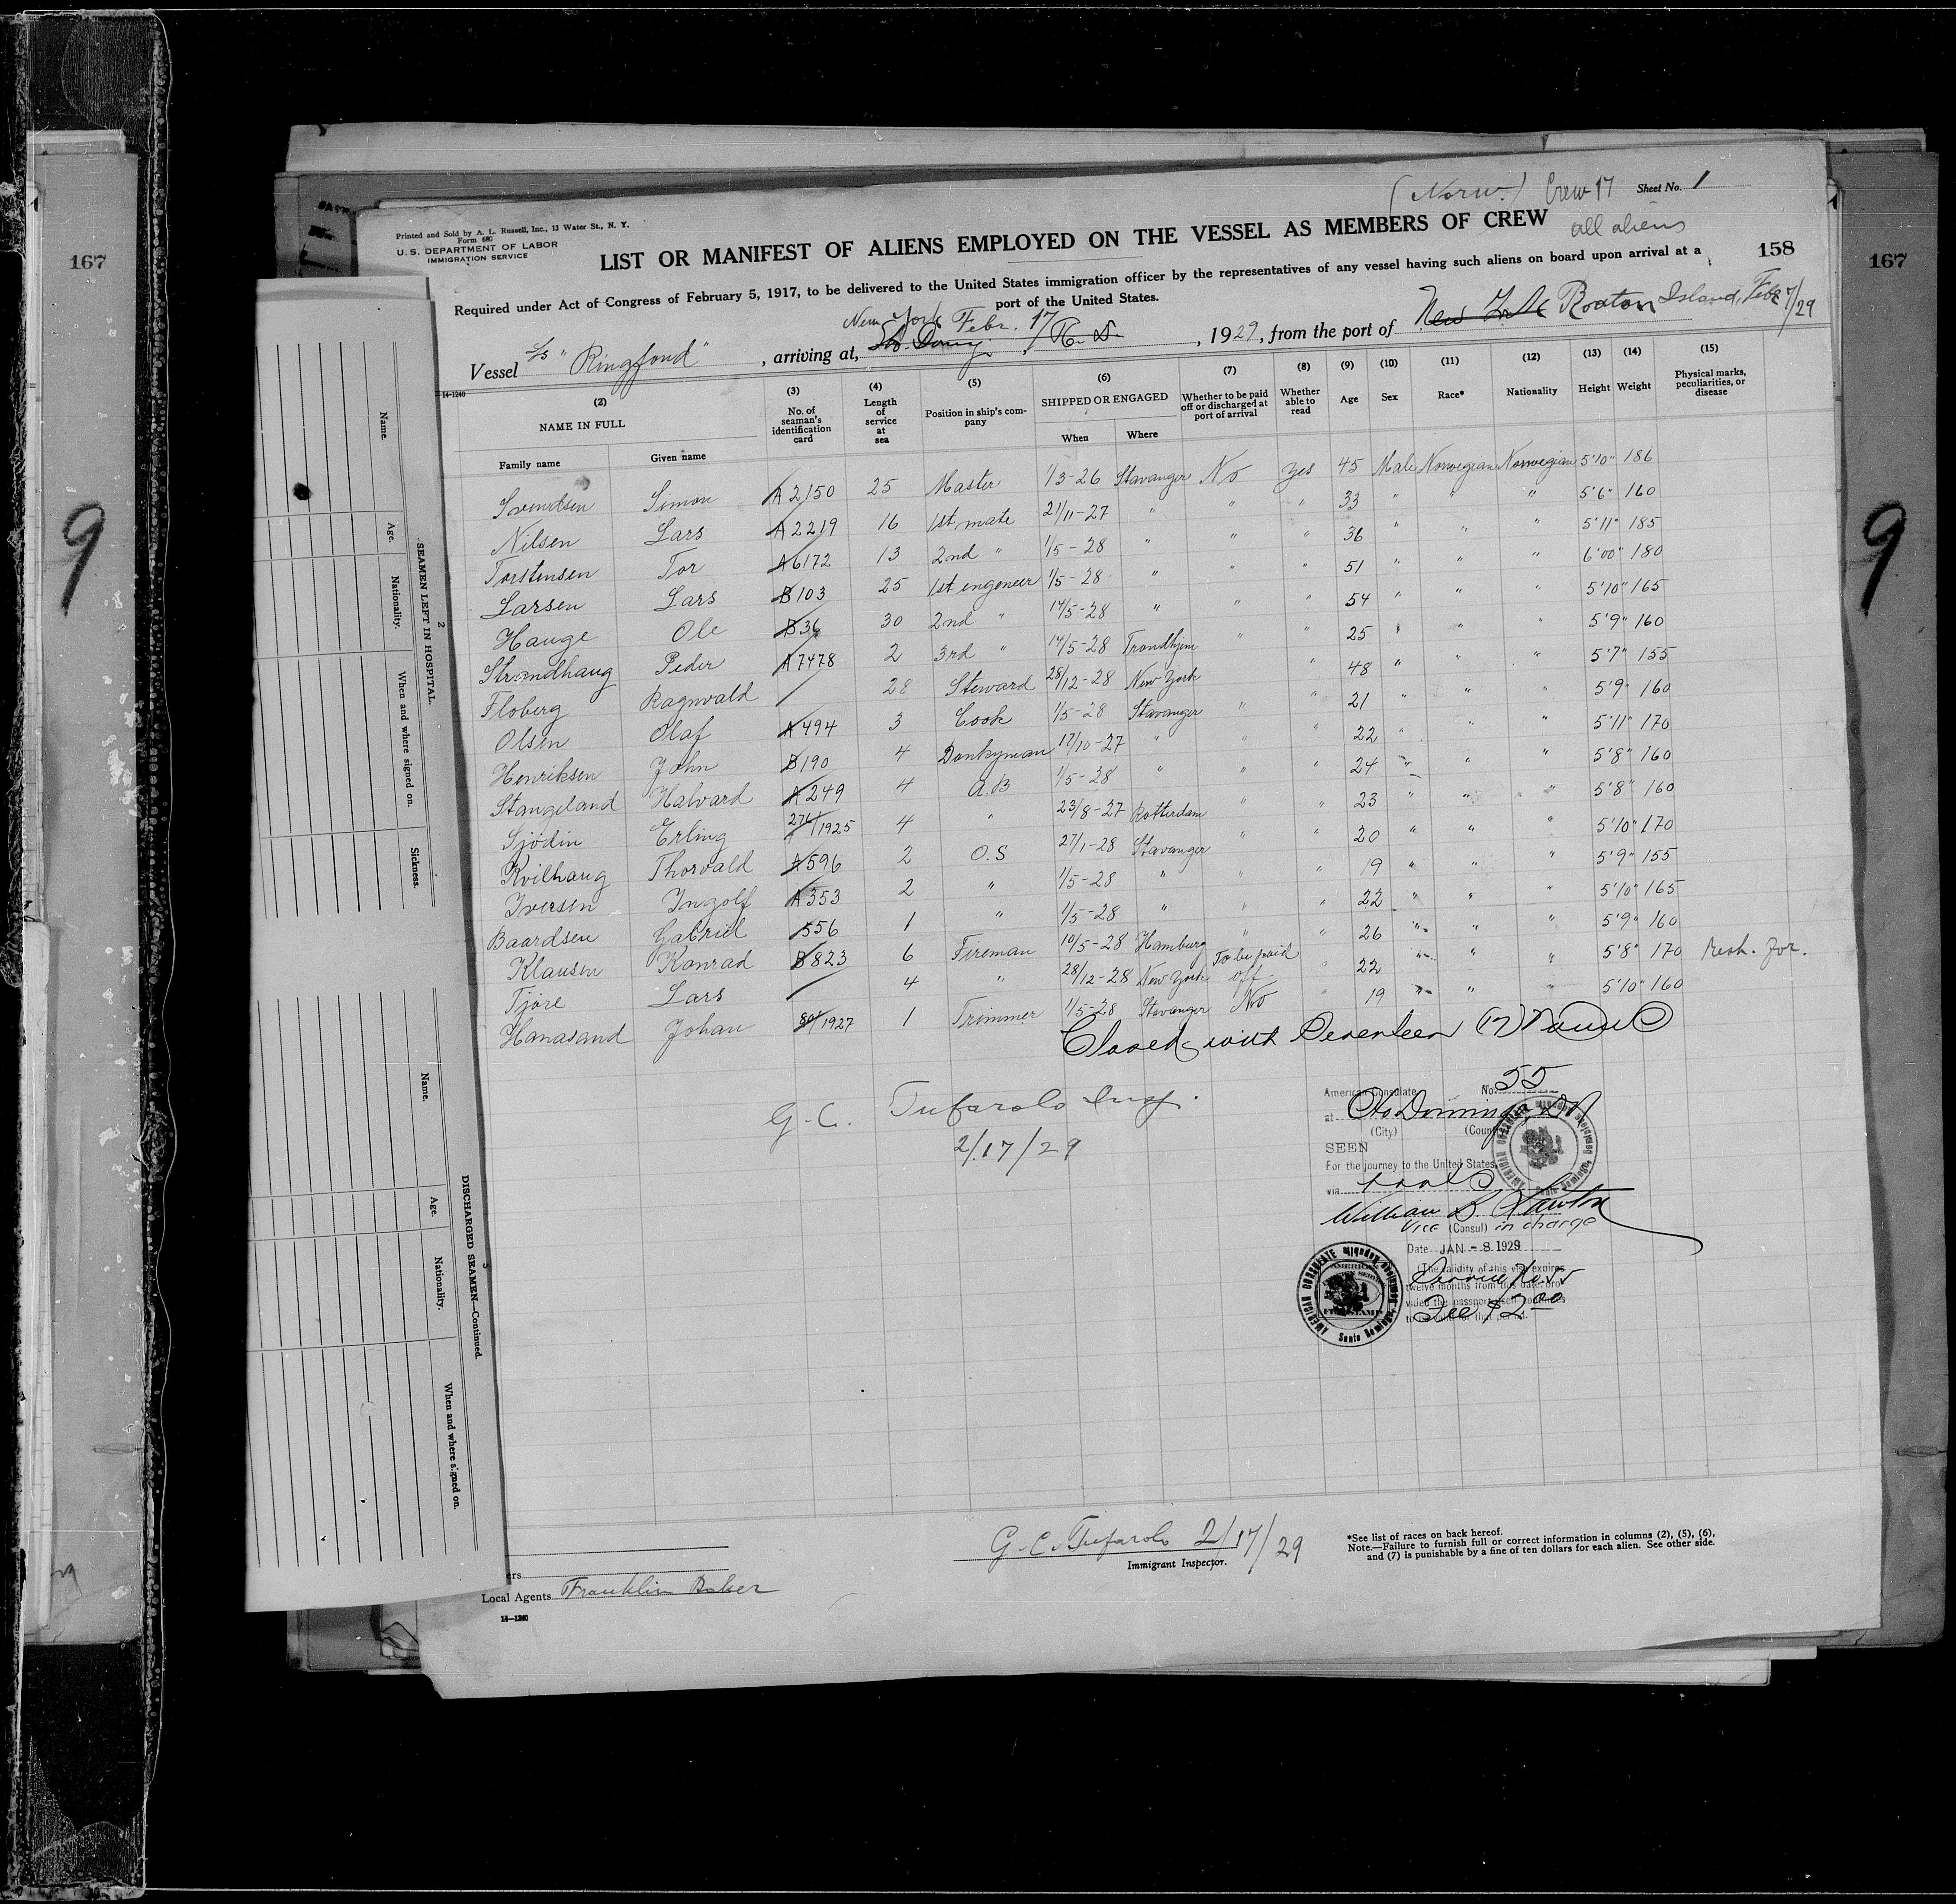 167
9
(Norw.) Crew 17 Sheet No. 1
all aliens
Printed and Sold by A. L. Russell, Inc., 13 Water St., N. Y.
Form 680
U. S. DEPARTMENT OF LABOR
IMMIGRATION SERVICE
LIST OR MANIFEST OF ALIENS EMPLOYED ON THE VESSEL AS MEMBERS OF CREW
158
167
Required under Act of Congress of February 5, 1917, to be delivered to the United States immigration officer by the representatives of any vessel having such aliens on board upon arrival at a
port of the United States.
New York Febr. 17
Vessel S/S "Ringfond", arriving at, Sto. Domingo R. D., 1929, from the port of New York Roatan Island, Feb 7/29
14-1240
(2) (3) (4) (5) (6) (7) (8) (9) (10) (11) (12) (13) (14) (15)
NAME IN FULL No. of seaman's identification card Length of service at sea Position in ship's company SHIPPED OR ENGAGED Whether to be paid off or discharged at port of arrival Whether able to read Age Sex Race* Nationality Height Weight Physical marks, peculiarities, or disease
Family name Given name When Where
Svendsen Simon A2150 25 Master 1/3-26 Stavanger No yes 45 Male Norwegian Norwegian 5'10" 186
Nilsen Lars A2219 16 1st mate 21/11-27 " " " 33 " " " 5'6" 160
Torstensen Tor A6172 13 2nd " 1/5-28 " " " 36 " " " 5'11" 185
Larsen Lars B103 25 1st engeneer 1/5-28 " " " 51 " " " 6'00" 180
Hauge Ole B36 30 2nd " 14/5-28 " " " 54 " " " 5'10" 165
Strandhaug Peder A7478 2 3rd " 14/5-28 Trondhjem " " 25 " " " 5'9" 160
Floberg Ragnvald / 28 Steward 28/12-28 New York " 48 " " " 5'7" 155
Olsen Olaf A494 3 Cook 1/5-28 Stavanger " " 21 " " " 5'9" 160
Henriksen John B190 4 Donkyman 17/10-27 " " " 22 " " " 5'11" 170
Stangeland Halvard A249 4 A.B 1/5-28 " " " 24 " " " 5'8" 160
Sjödin Erling 276/1925 4 " 23/8-27 Rotterdam " " 23 " " " 5'8" 160
Kvilhaug Thorvald A596 2 O.S 27/1-28 Stavanger " " 20 " " " 5'10" 170
Iversen Ingolf A353 2 " 1/5-28 " " " 19 " " " 5'9" 155
Baardsen Gabriel 556 1 " 1/5-28 " " " 22 " " " 5'10" 165
Klausen Konrad B823 6 Fireman 10/5-28 Hamburg " " 26 " " " 5'9" 160
Tjøre Lars / 4 " 28/12-28 New York To be paid off " 22 " " " 5'8" 170
Hanasand Johan 80/1927 1 Trimmer 1/5-28 Stavanger No " 19 " " " 5'10" 160
Closed with Seventeen (17) names
G. C. Tufarolo Insp.
2/17/29
American Consulate No. 55
at Sto Domingo, D.R.
(City) (Country)
SEEN
For the journey to the United States
via
William B. Lawton
Vice (Consul) in charge
Date JAN - 8 1929
(The validity of this visa expires
twelve months from this date, pro-
vided the passport
Fee $2.00
AMERICAN CONSULATE Santo Domingo, Dominican Republic
G. C. Tufarolo 2/17/29
Immigrant Inspector.
*See list of races on back hereof.
Note.—Failure to furnish full or correct information in columns (2), (5), (6),
and (7) is punishable by a fine of ten dollars for each alien. See other side.
ers
Local Agents Franklin Baker
14-1240
2
SEAMEN LEFT IN HOSPITAL.
Name. Age. Nationality. When and where signed on. Sickness.
3
DISCHARGED SEAMEN—Continued.
Name. Age. Nationality. When and where signed on.
9